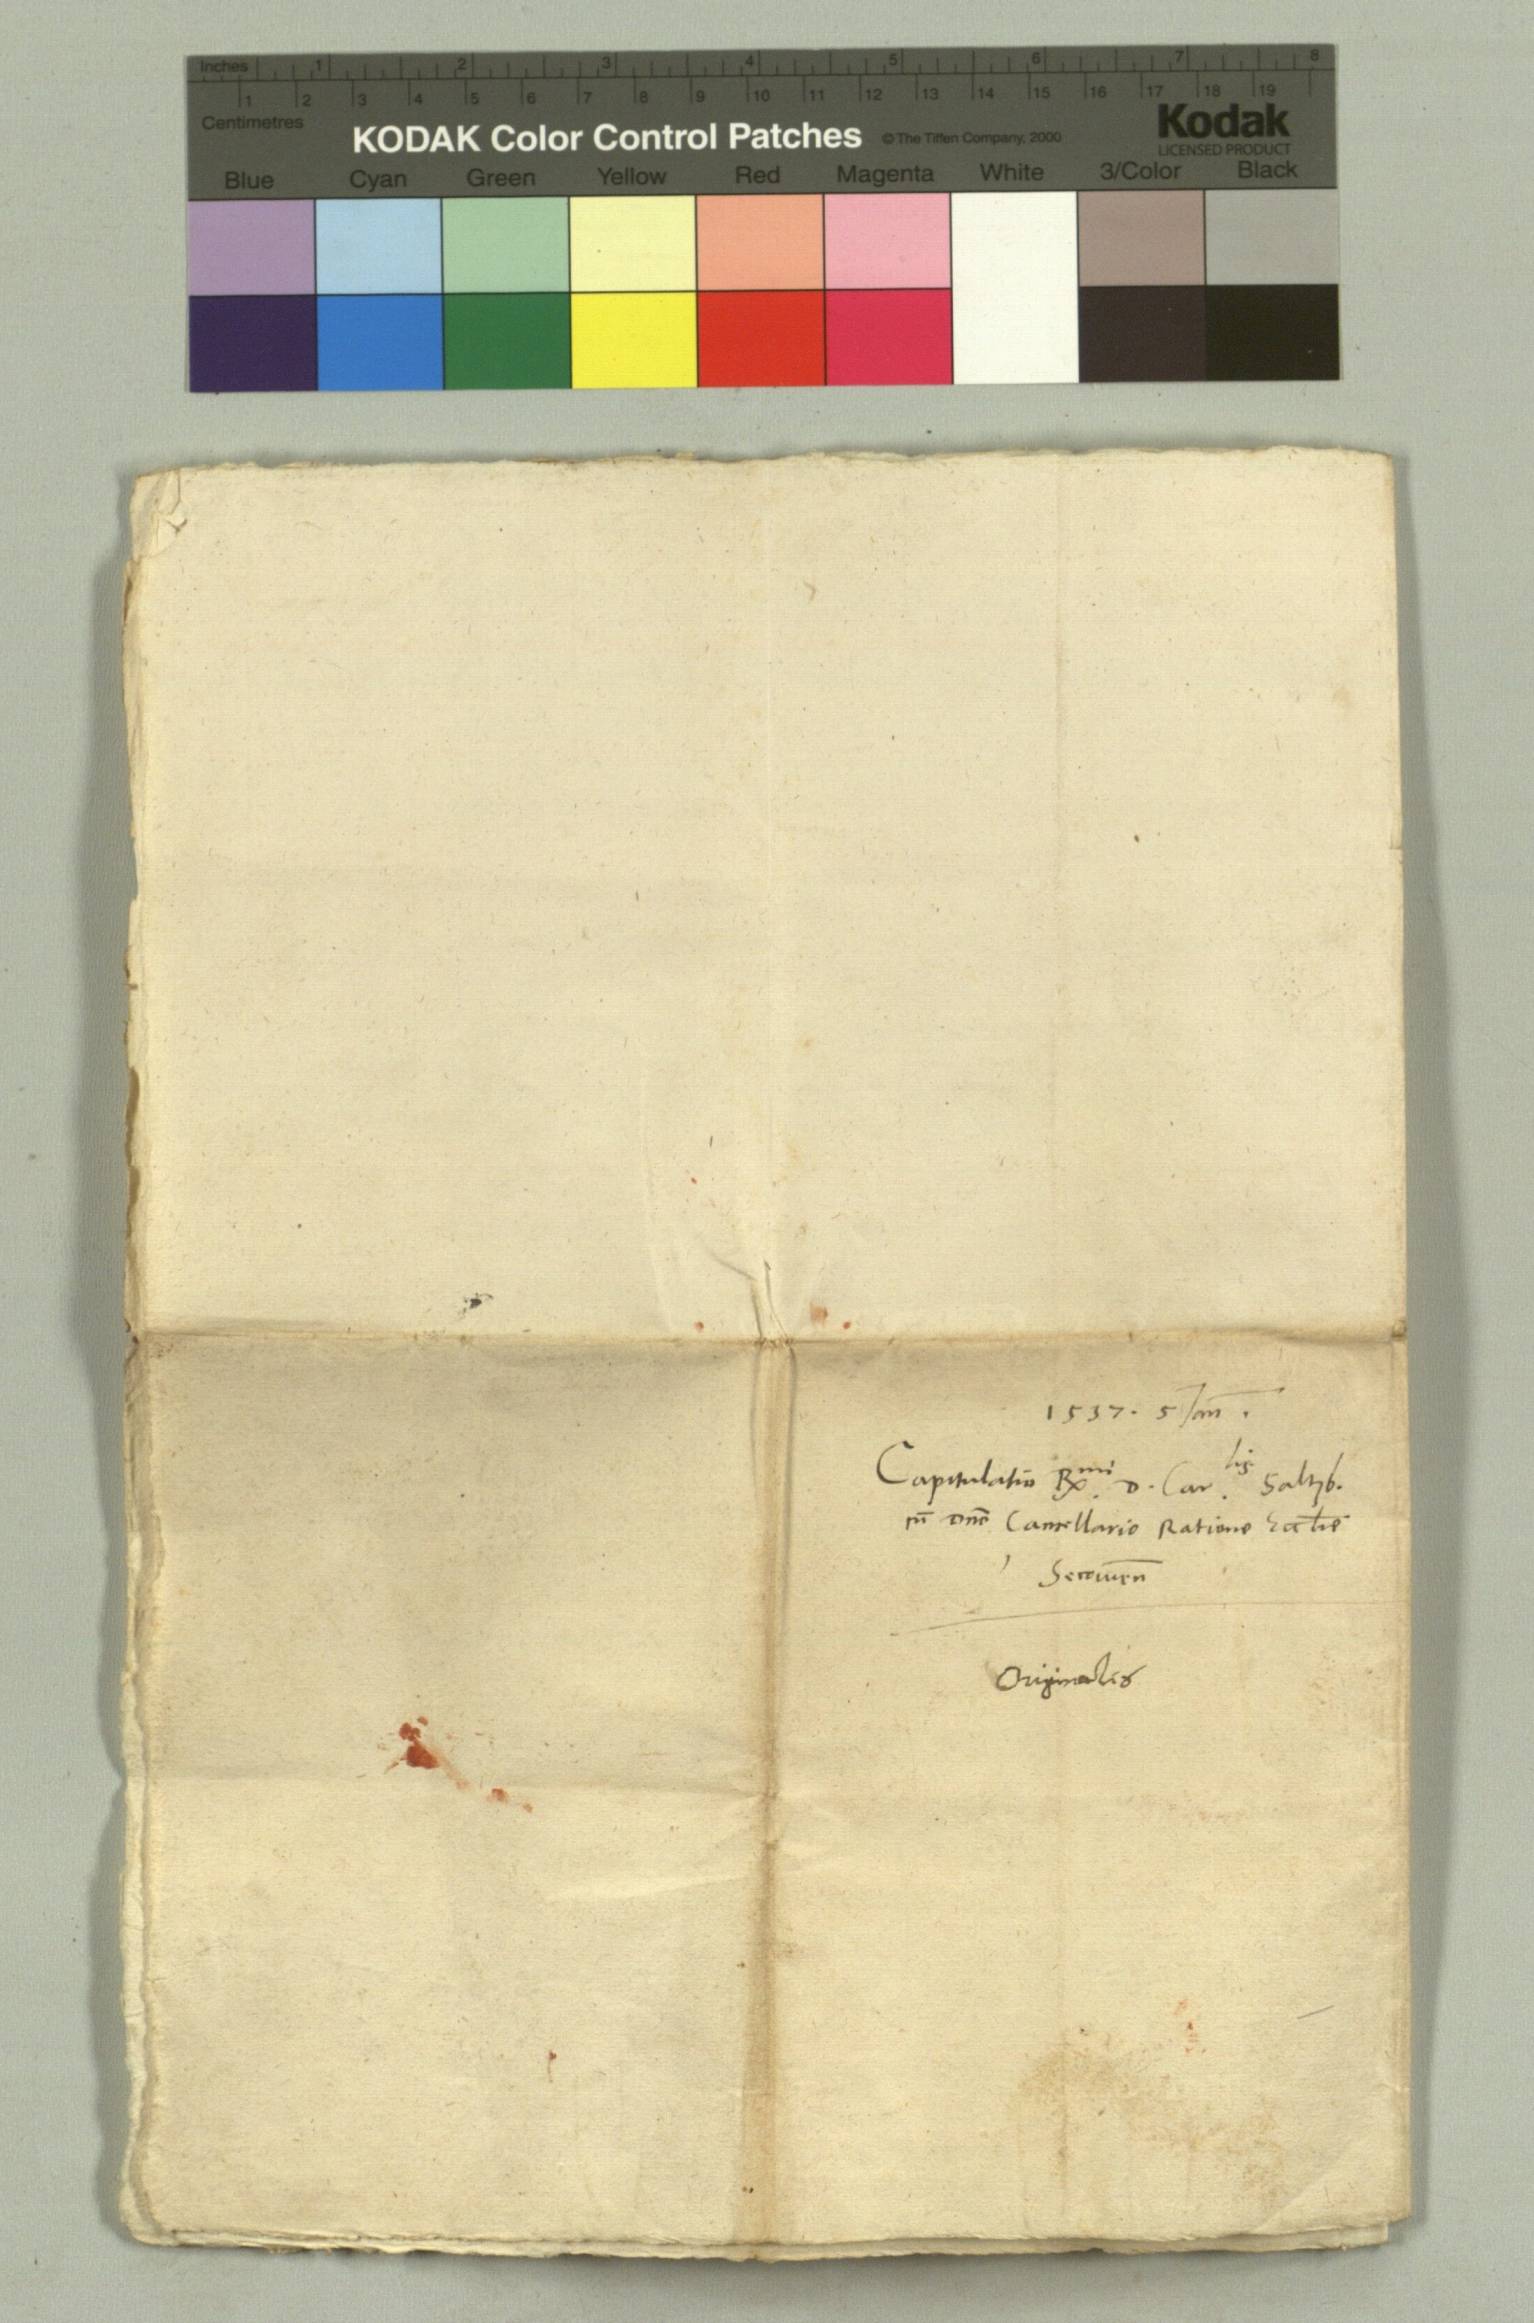 Inches 1 2 3 4 5 6 7 8
1 2 3 4 5 6 7 8 9 10 11 12 13 14 15 16 17 18 19
Centimetres
KODAK Color Control Patches © The Tiffen Company, 2000 Kodak
LICENSED PRODUCT
Blue Cyan Green Yellow Red Magenta White 3/Color Black
1537. 5 Jan̄.
Capitulatio R^mi. D. Car.^lis Saltzb.
cū dn̄o Cancellario Ratione Eccl̄ie
Secouien̄
Originalis